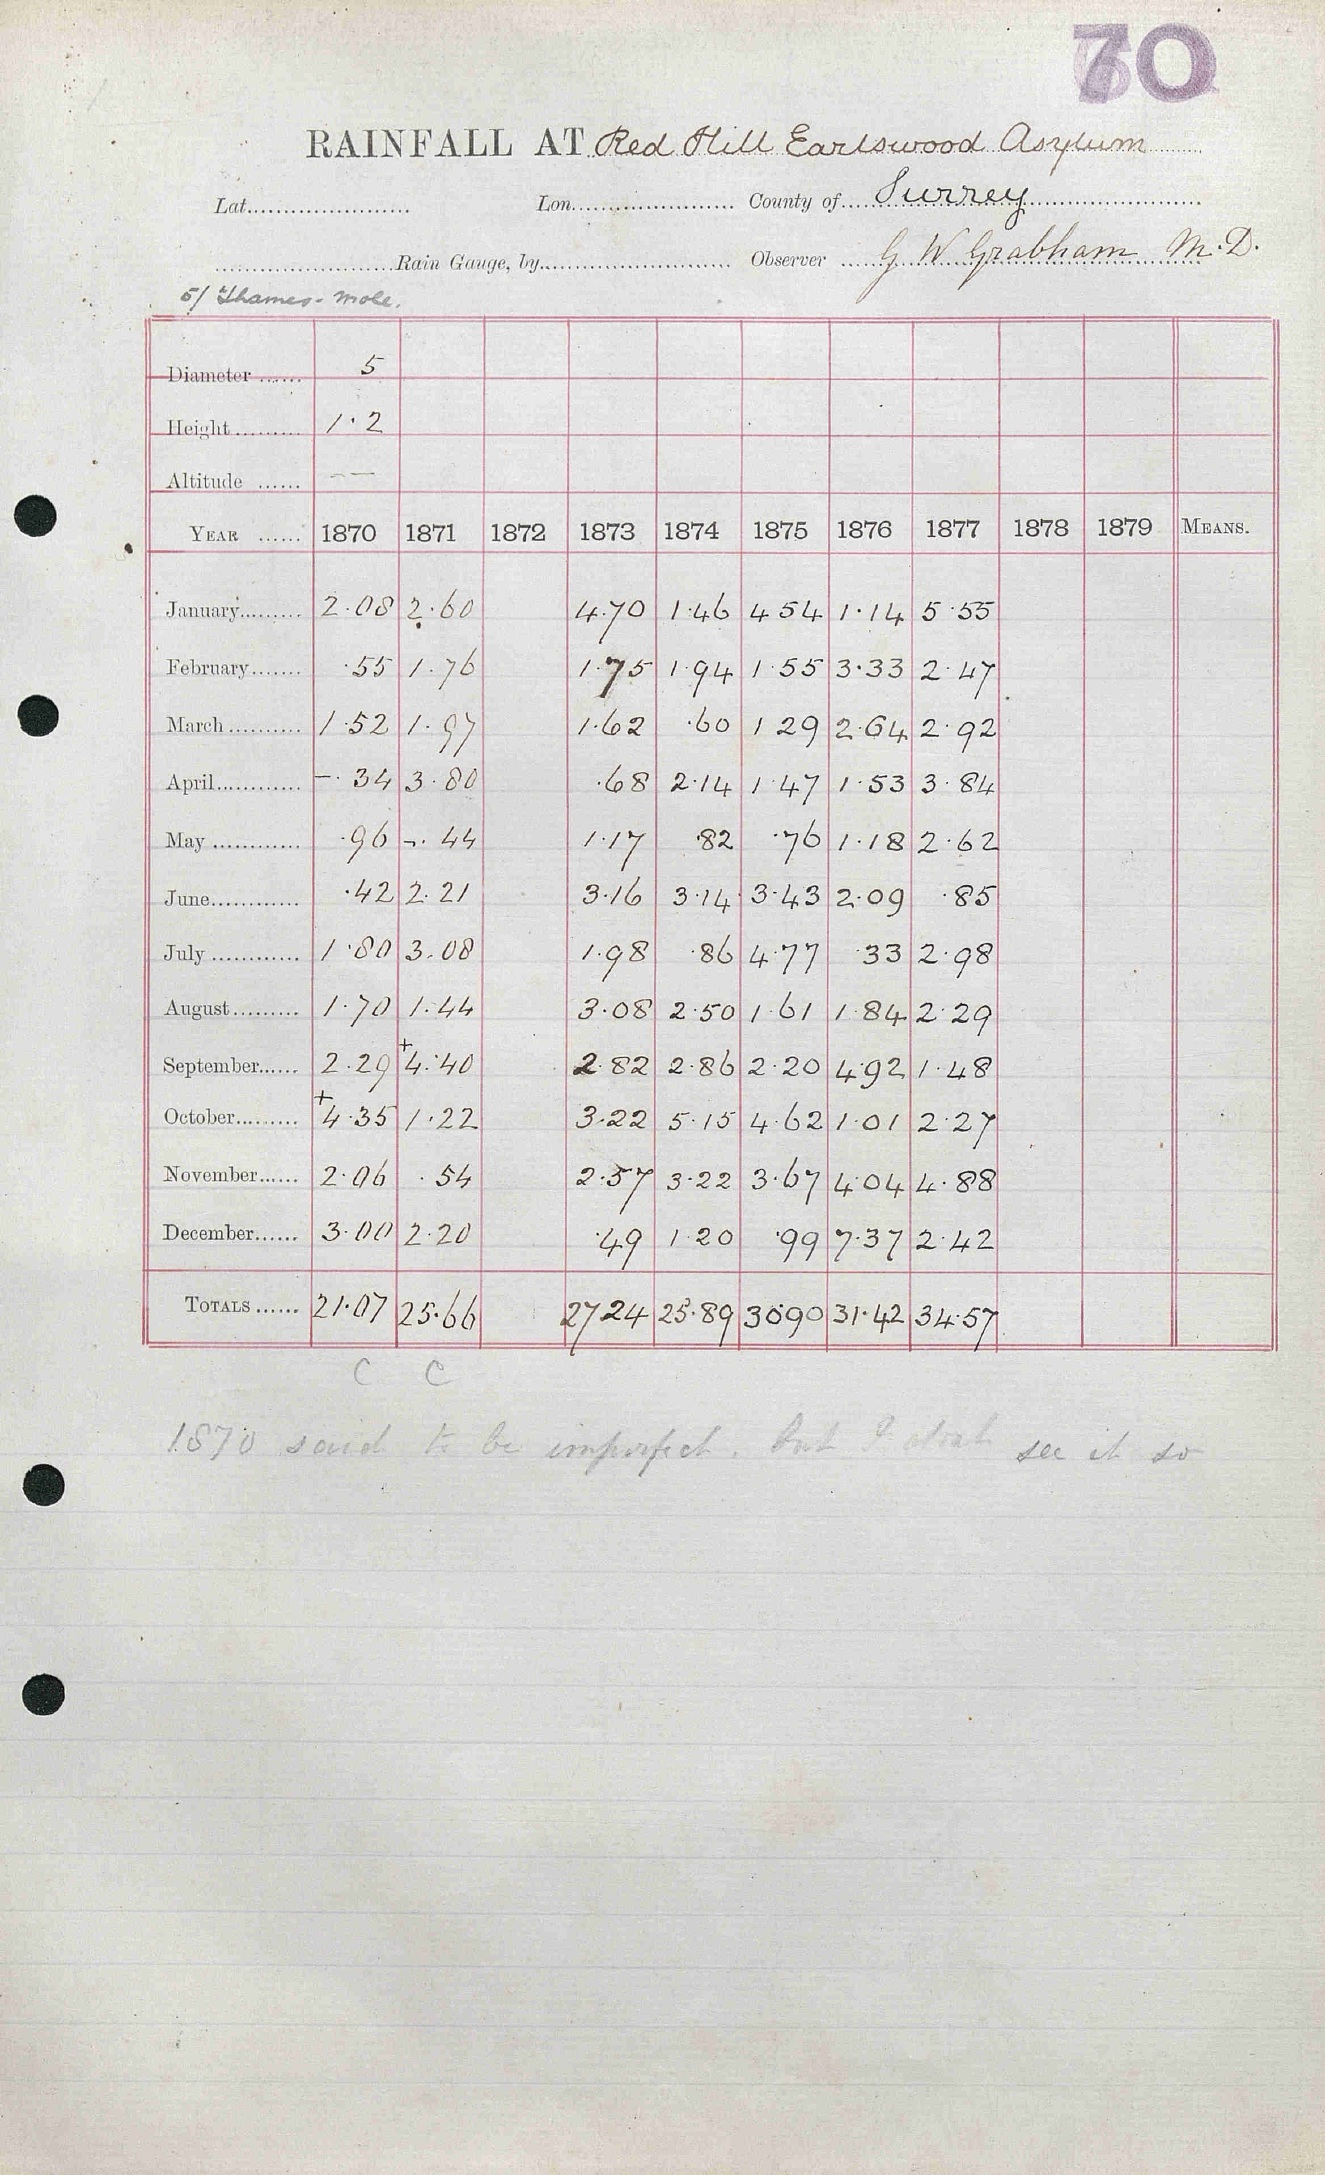 70
RAINFALL AT Red Hill Earlswood Asylum
Lat. Lon. County of Surrey
Rain Gauge, by Observer G W Grabham M.D.
5/ Thames - Mole.
Diameter 5
Height 1.2
Altitude —
YEAR 1870 1871 1872 1873 1874 1875 1876 1877 1878 1879 MEANS.
January 2.08 2.60 4.70 1.46 4 54 1.14 5.55
February .55 1.76 1.75 1.94 1.55 3.33 2.47
March 1.52 1.97 1.62 .60 1 29 2.64 2.92
April -.34 3.80 .68 2.14 1.47 1.53 3.84
May .96 -.44 1.17 .82 .76 1.18 2.62
June .42 2.21 3.16 3.14 3.43 2.09 .85
July 1.80 3.08 1.98 .86 4.77 .33 2.98
August 1.70 1.44 3.08 2.50 1.61 1.84 2.29
September 2.29 +4.40 2.82 2.86 2.20 4.92 1.48
October +4.35 1.22 3.22 5.15 4.62 1.01 2.27
November 2.06 .54 2.57 3.22 3.67 4.04 4.88
December 3.00 2.20 .49 1.20 .99 7.37 2.42
TOTALS 21.07 25.66 27 24 25.89 30.90 31.42 34.57
C C
1870 said to be imperfect. but I dont see it so